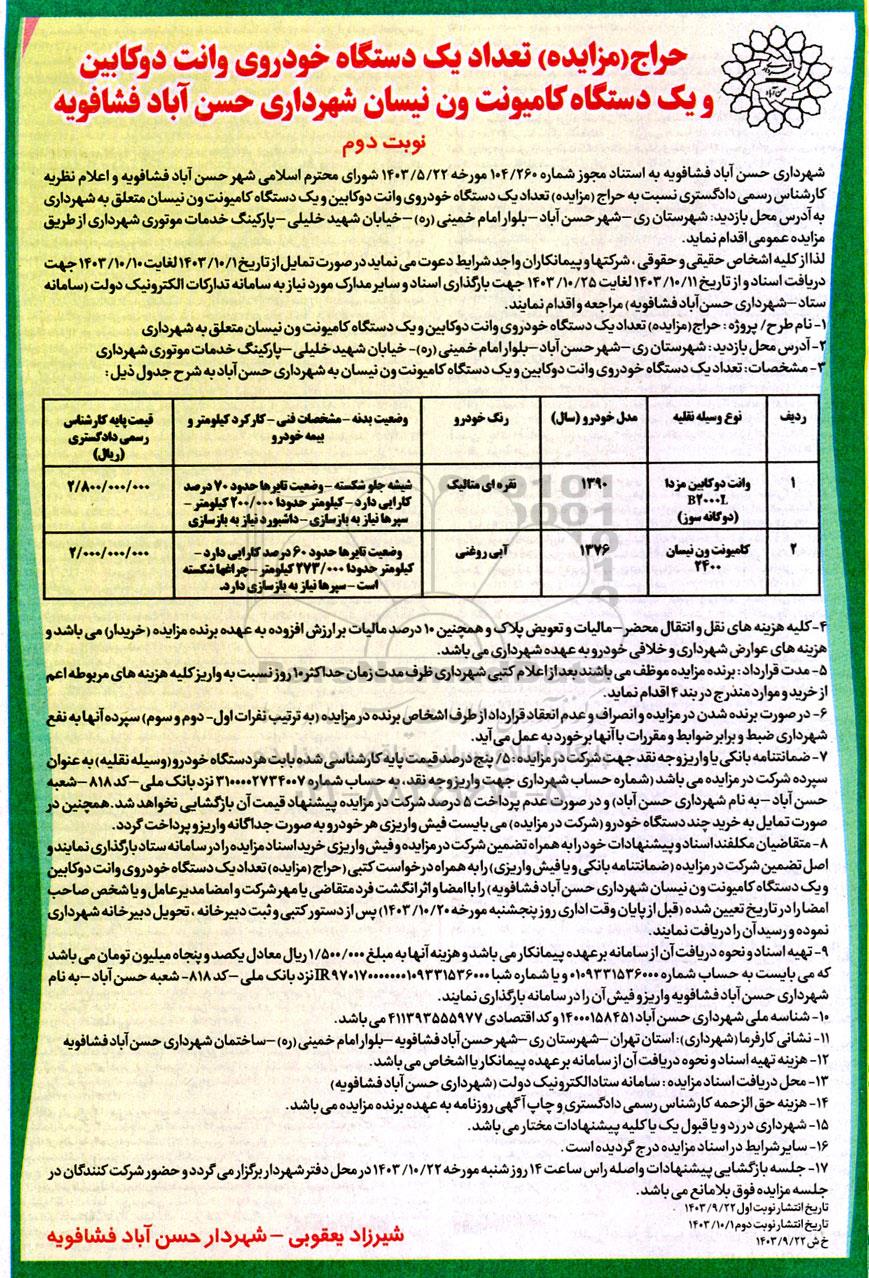 حراج(مزایده) تعداد یک دستگاه خودروی وانت دوکابین
و یک دستگاه کامیونت ون نیسان شهرداری حسن آباد فشافویه
نوبت دوم
شهرداری حسن آباد فشافویه به استناد مجوز شماره ۱۰۴/۲۶۰ مورخه ۱۴۰۳/۵/۲۲ شورای محترم اسلامی شهر حسن آباد فشافویه و اعلام نظریه
کارشناس رسمی دادگستری نسبت به حراج (مزایده) تعداد یک دستگاه خودروی وانت دوکابین و یک دستگاه کامیونت ون نیسان متعلق به شهرداری
به آدرس محل بازدید: شهرستان ری –شهر حسن آباد –بلوار امام خمینی (ره) –خیابان شهید خلیلی –پارکینگ خدمات موتوری شهرداری از طریق
مزایده عمومی اقدام نماید.
لذا از کلیه اشخاص حقیقی و حقوقی ، شرکتها و پیمانکاران واجد شرایط دعوت می نماید در صورت تمایل از تاریخ ۱۴۰۳/۱۰/۱ لغایت ۱۴۰۳/۱۰/۱۰ جهت
دریافت اسناد و از تاریخ ۱۴۰۳/۱۰/۱۱ لغایت ۱۴۰۳/۱۰/۲۵ جهت بارگذاری اسناد و سایر مدارک مورد نیاز به سامانه تدارکات الکترونیک دولت (سامانه
ستاد –شهرداری حسن آباد فشافویه) مراجعه و اقدام نمایند.
۱- نام طرح/ پروژه : حراج (مزایده) تعداد یک دستگاه خودروی وانت دوکابین و یک دستگاه کامیونت ون نیسان متعلق به شهرداری
۲- آدرس محل بازدید: شهرستان ری –شهر حسن آباد –بلوار امام خمینی (ره)- خیابان شهید خلیلی –پارکینگ خدمات موتوری شهرداری
۳- مشخصات: تعداد یک دستگاه خودروی وانت دوکابین و یک دستگاه کامیونت ون نیسان به شهرداری حسن آباد به شرح جدول ذیل :
ردیف نوع وسیله نقلیه مدل خودرو (سال) رنگ خودرو وضعیت بدنه – مشخصات فنی – کارکرد کیلومتر و بیمه خودرو قیمت پایه کارشناس رسمی دادگستری (ریال)
۱ وانت دوکابین مزدا B۲۰۰۰L (دوگانه سوز) ۱۳۹۰ نقره ای متالیک شیشه جلو شکسته – وضعیت تایرها حدود ۷۰ درصد کارایی دارد – کیلومتر حدودا ۲۰۰/۰۰۰ کیلومتر – سپرها نیاز به بازسازی – داشبورد نیاز به بازسازی ۲/۸۰۰/۰۰۰/۰۰۰
۲ کامیونت ون نیسان ۲۴۰۰ ۱۳۷۶ آبی روغنی وضعیت تایرها حدود ۶۰ درصد کارایی دارد – کیلومتر حدودا ۲۷۳/۰۰۰ کیلومتر – چراغها شکسته است – سپرها نیاز به بازسازی دارد. ۲/۰۰۰/۰۰۰/۰۰۰
۴- کلیه هزینه های نقل و انتقال محضر –مالیات و تعویض پلاک و همچنین ۱۰ درصد مالیات بر ارزش افزوده به عهده برنده مزایده (خریدار) می باشد و
هزینه های عوارض شهرداری و خلافی خودرو به عهده شهرداری می باشد.
۵- مدت قرارداد: برنده مزایده موظف می باشند بعد از اعلام کتبی شهرداری ظرف مدت زمان حداکثر ۱۰ روز نسبت به واریز کلیه هزینه های مربوطه اعم
از خرید و موارد مندرج در بند ۴ اقدام نماید.
۶- در صورت برنده شدن در مزایده و انصراف و عدم انعقاد قرارداد از طرف اشخاص برنده در مزایده (به ترتیب نفرات اول- دوم و سوم) سپرده آنها به نفع
شهرداری ضبط و برابر ضوابط و مقررات با آنها برخورد به عمل می آید.
۷- ضمانتنامه بانکی یا واریز وجه نقد جهت شرکت در مزایده: ۵٪ پنج درصد قیمت پایه کارشناسی شده بابت هر دستگاه خودرو (وسیله نقلیه) به عنوان
سپرده شرکت در مزایده می باشد (شماره حساب شهرداری جهت واریز وجه نقد، به حساب شماره ۳۱۰۰۰۰۲۷۳۴۰۰۷ نزد بانک ملی –کد ۸۱۸ –شعبه
حسن آباد –به نام شهرداری حسن آباد) و در صورت عدم پرداخت ۵ درصد شرکت در مزایده پیشنهاد قیمت آن بازگشایی نخواهد شد. همچنین در
صورت تمایل به خرید چند دستگاه خودرو (شرکت در مزایده) می بایست فیش واریزی هر خودرو به صورت جداگانه واریز و پرداخت گردد.
۸- متقاضیان مکلفند اسناد و پیشنهادات خود را به همراه تضمین شرکت در مزایده و فیش واریزی خرید اسناد مزایده را در سامانه ستاد بارگذاری نمایند و
اصل تضمین شرکت در مزایده (ضمانتنامه بانکی و یا فیش واریزی) را به همراه درخواست کتبی (حراج (مزایده) تعداد یک دستگاه خودروی وانت دوکابین
و یک دستگاه کامیونت ون نیسان شهرداری حسن آباد فشافویه) را با امضا و اثر انگشت فرد متقاضی یا مهر شرکت و امضا مدیرعامل و یا شخص صاحب
امضا را در تاریخ تعیین شده (قبل از پایان وقت اداری روز پنجشنبه مورخه ۱۴۰۳/۱۰/۲۰) پس از دستور کتبی و ثبت دبیرخانه ، تحویل دبیرخانه شهرداری
نموده و رسید آن را دریافت نمایند.
۹- تهیه اسناد و نحوه دریافت آن از سامانه بر عهده پیمانکار می باشد و هزینه آنها به مبلغ ۱/۵۰۰/۰۰۰ ریال معادل یکصد و پنجاه میلیون تومان می باشد
که می بایست به حساب شماره ۰۱۰۹۳۳۱۵۳۶۰۰۰ و یا شماره شبا IR۹۷۰۱۷۰۰۰۰۰۰۰۱۰۹۳۳۱۵۳۶۰۰۰ نزد بانک ملی –کد ۸۱۸- شعبه حسن آباد –به نام
شهرداری حسن آباد فشافویه واریز و فیش آن را در سامانه بارگذاری نمایند.
۱۰- شناسه ملی شهرداری حسن آباد ۱۴۰۰۰۱۵۸۴۵۱ و کد اقتصادی ۴۱۱۳۹۳۵۵۵۹۷۷ می باشد.
۱۱- نشانی کارفرما (شهرداری): استان تهران –شهرستان ری –شهر حسن آباد فشافویه –بلوار امام خمینی (ره) –ساختمان شهرداری حسن آباد فشافویه
۱۲- هزینه تهیه اسناد و نحوه دریافت آن از سامانه بر عهده پیمانکار یا اشخاص می باشد.
۱۳- محل دریافت اسناد مزایده : سامانه ستاد الکترونیک دولت (شهرداری حسن آباد فشافویه)
۱۴- هزینه حق الزحمه کارشناس رسمی دادگستری و چاپ آگهی روزنامه به عهده برنده مزایده می باشد.
۱۵- شهرداری در رد و یا قبول یک یا کلیه پیشنهادات مختار می باشد.
۱۶- سایر شرایط در اسناد مزایده درج گردیده است.
۱۷- جلسه بازگشایی پیشنهادات واصله راس ساعت ۱۴ روز شنبه مورخه ۱۴۰۳/۱۰/۲۲ در محل دفتر شهردار برگزار می گردد و حضور شرکت کنندگان در
جلسه مزایده فوق بلامانع می باشد.
تاریخ انتشار نوبت اول ۱۴۰۳/۹/۲۲
تاریخ انتشار نوبت دوم ۱۴۰۳/۱۰/۱
خ ش ۱۴۰۳/۹/۲۲
شیرزاد یعقوبی – شهردار حسن آباد فشافویه